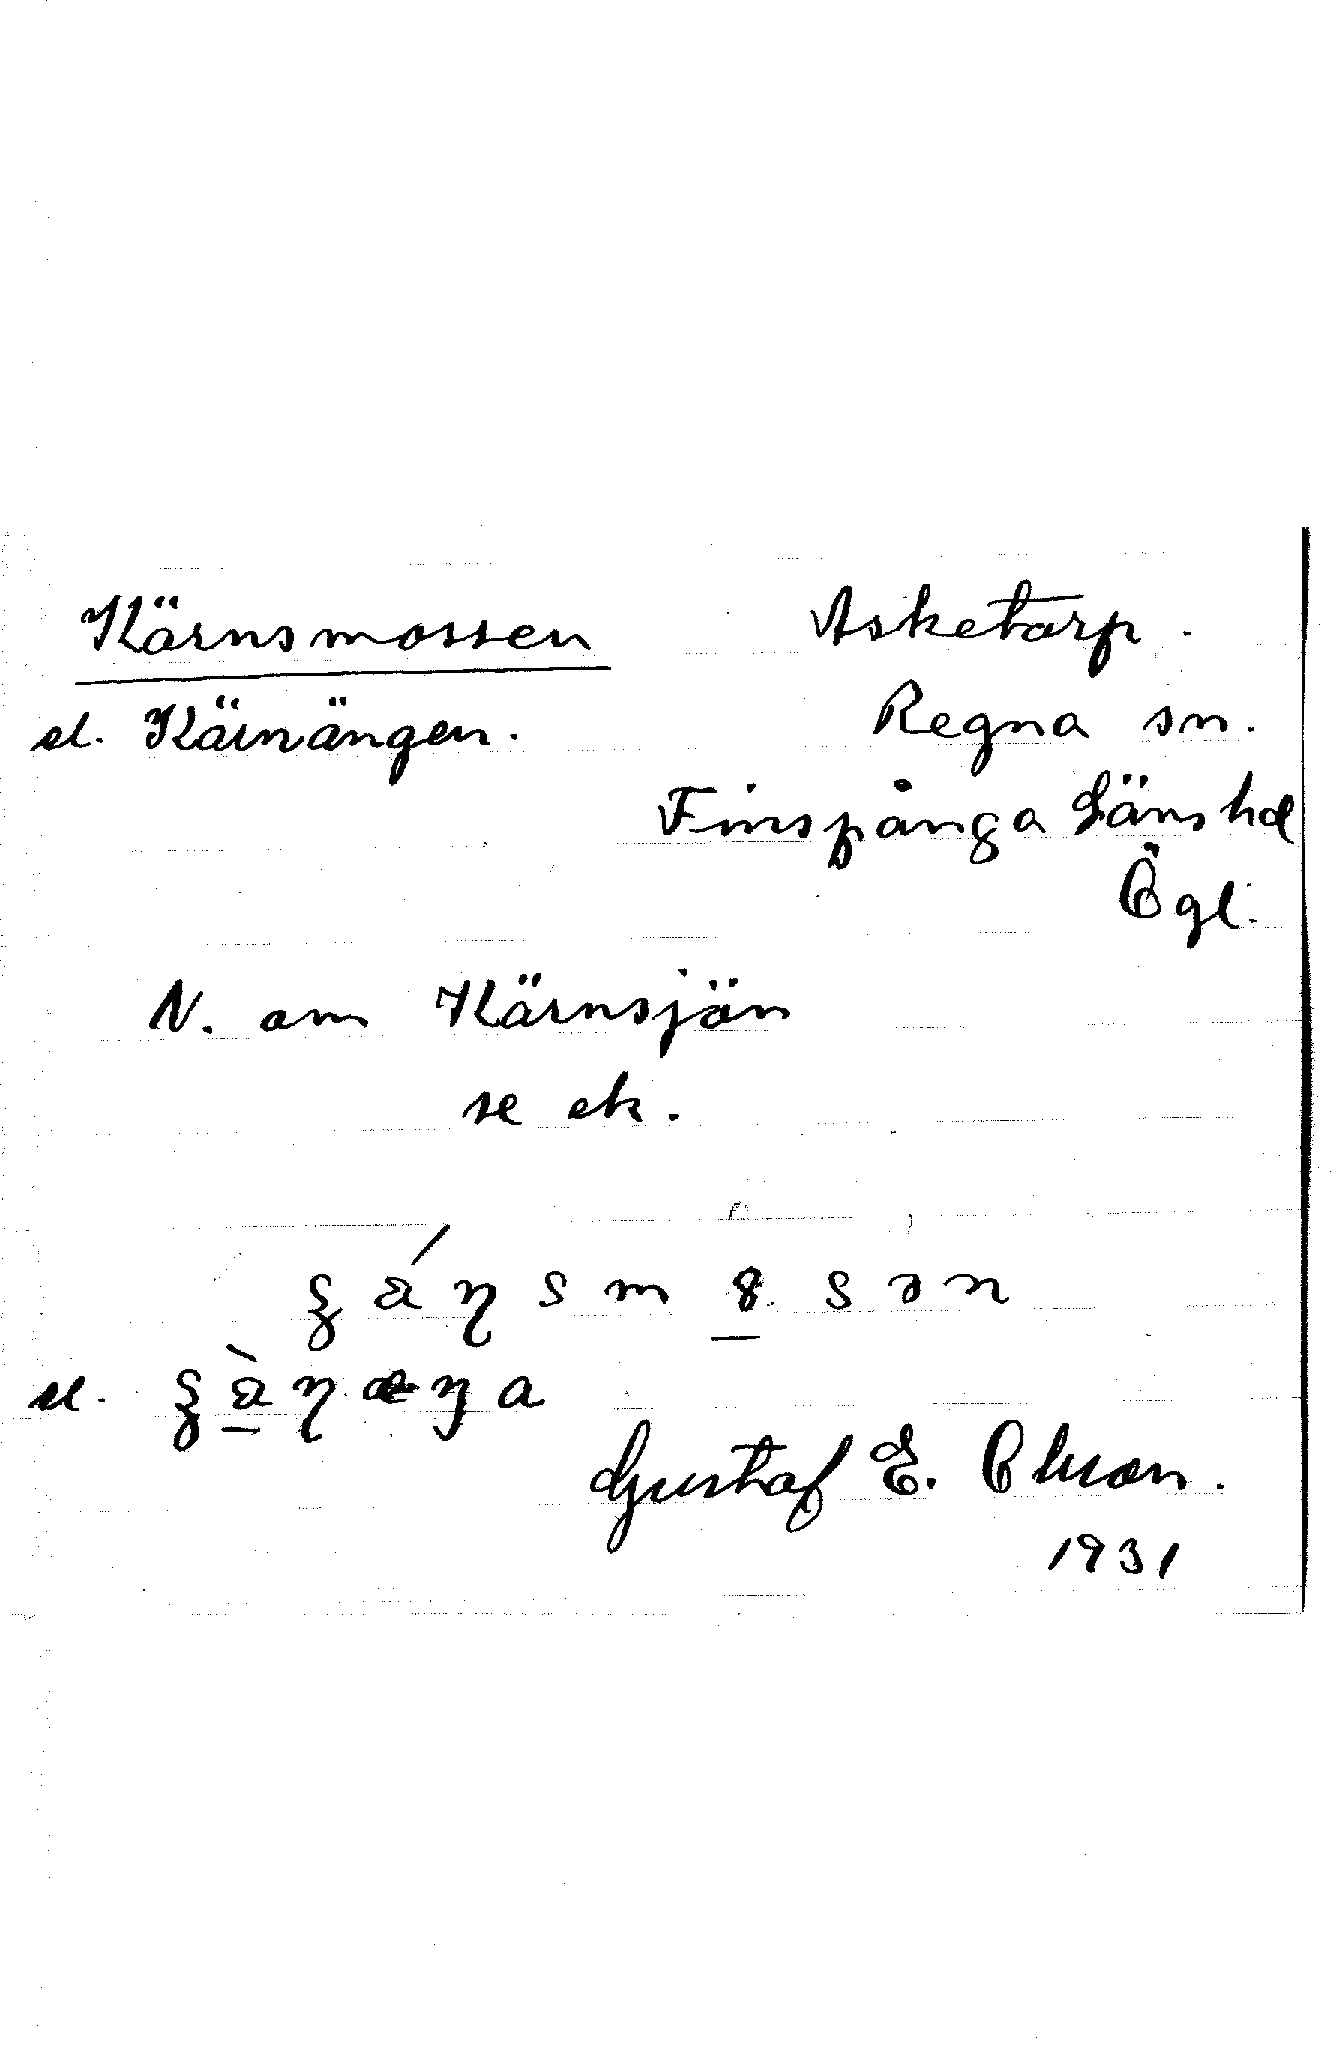 Kärnsmossen
el. Kärnängen.
Asketorp.
Regna sn.
Finspånga Läns hd
Ögl.
N. om Kärnsjön
se ek.
el.
Gustaf E. Olsson.
1931